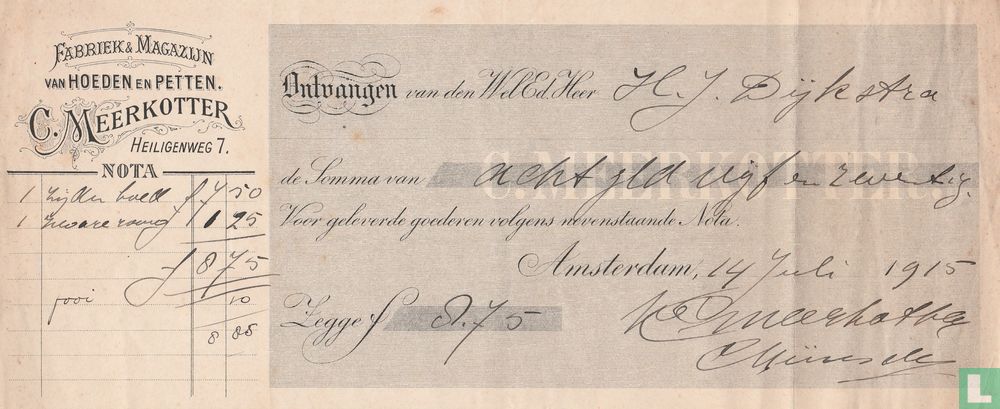 FABRIEK & MAGAZIJN
VAN HOEDEN EN PETTEN.
C. MEERKOTTER
HEILIGENWEG 7.
NOTA
1 zijden hoed f 7 50
1 zware 1 25
f 8 75
fooi 10
8 85
Ontvangen van den Wel.Ed. Heer H. J. Dijkstra
C. MEERKOTTER
de Somma van acht gld vijf en zeventig.
Voor geleverde goederen volgens nevenstaande Nota.
Amsterdam, 14 Juli 1915
Zegge f 8.75
Meerkotter
L